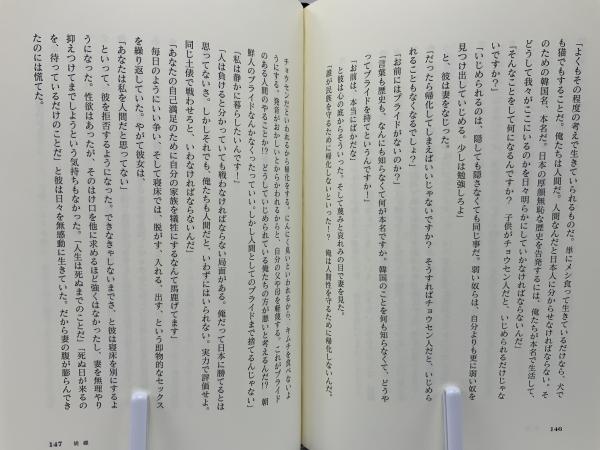 「よくもその程度の考えで生きていられるものだ。単にメシ食って生きているだけなら、犬で
も猫でもすることだ。俺たちは人間だ。人間なんだと日本人に分からせなければならない。そ
のための韓国名、本名だ。日本の厚顔無恥な歴史を告発するには、俺たちが本名で生活して、
どうして我々がここにいるのかを日々明らかにしていかなければならないんだ」
「そんなことをして何になるんですか？　子供がチョウセン人だと、いじめられるだけじゃな
いですか？」
「いじめられるのは、隠しても隠さなくても同じ事だ。弱い奴らは、自分よりも更に弱い奴を
見つけ出していじめる。少しは勉強しろよ」
と、彼は妻をなじった。
「だったら帰化してしまえばいいじゃないですか？　そうすればチョウセン人だと、いじめら
れることもなくなるでしょ？」
「お前にはプライドがないのか？」
「言葉も歴史も、なんにも知らなくて何が本名ですか。韓国のことを何も知らなくて、どうや
ってプライドを持てというんですか！」
「お前は、本当にばかだな」
と彼は心の底からそういった。そして蔑みと哀れみの目で妻を見た。
「誰が民族を守るために帰化しないといった！？　俺は人間性を守るために帰化しないんだ。
146
チョウセンだといわれるから帰化をする。にんにく臭いといわれるから、キムチを食べないよ
うにする。発音がおかしいとからかわれるからと、自分の父や母を軽蔑する。これがプライド
のある人間のやることか!?　どうしていじめられている俺たちの方が悪いと考えるんだ!?　朝
鮮人のプライドなんかなくったっていい。しかし人間としてのプライドまで捨てるんじゃない」
「私は静かに暮らしたいんです！」
「人は負けると分かっていても戦わなければならない局面がある。俺だって日本に勝てるとは
思ってないさ。しかしそれでも、俺たちも人間だと、いわずにはいられない。実力で評価せよ。
同じ土俵で戦わせろと、いわなければならないんだ」
「あなたの自己満足のために自分の家族を犠牲にするなんて馬鹿げてます」
毎日のようにいい争い、そして寝床では、脱がす、入れる、出す、という即物的なセックス
を繰り返していた。やがて彼女は、
「あなたは私を人間だと思ってない」
といって、彼を拒否するようになった。できなきゃしないまでさ、と彼は寝床を別にするよ
うになった。性欲はあったが、そのはけ口を他に求めるほど強くはなかったし、妻を無理やり
抑えつけてまでしようという気持ちもなかった。「人生は死ぬまでのことだ」「死ぬ日が来るの
を、待っているだけのことだ」と彼は日々を無感動に生きていた。だから妻の腹が膨らんでき
たのには慌てた。
147